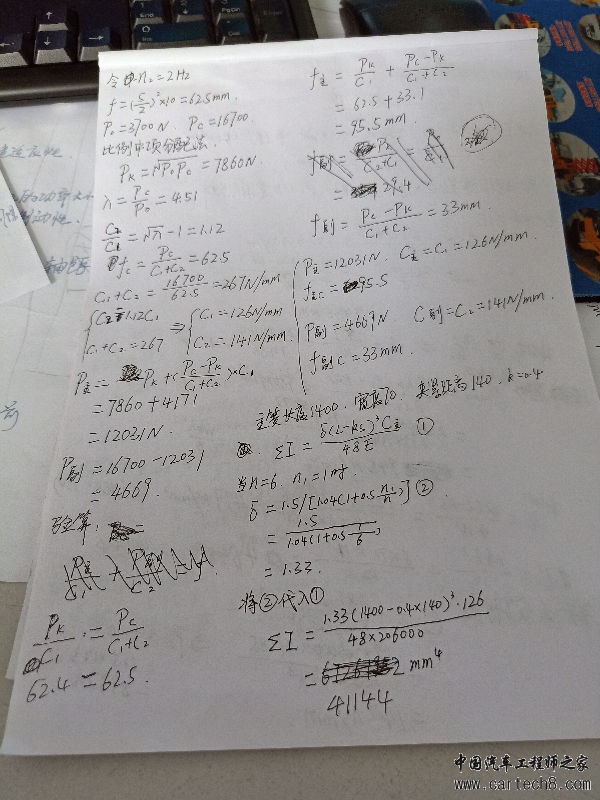 令n₀=2Hz
f=(5/2)²×10=62.5mm.
P₀=3700N, Pc=16700
比例中项分配法
Pk=√P₀Pc=7860N.
λ=Pc/P₀=4.51
C₂/C₁=√λ-1=1.12
fc=Pc/(C₁+C₂)=62.5
C₁+C₂=16700/62.5=267N/mm
{C₂=1.12C₁
C₁+C₂=267
⇒{C₁=126N/mm
C₂=141N/mm
P主=Pk+(Pc-Pk)/(C₁+C₂)×C₁
=7860+4171
=12031N.
P副=16700-12031
=4669.
验算:
Pk/C₁=Pc/(C₁+C₂)
62.4=62.5.
f主=Pk/C₁+(Pc-Pk)/(C₁+C₂)
=62.5+33.1
=95.5mm
f副=
=29.4
f副=(Pc-Pk)/(C₁+C₂)=33mm
P主=12031N. C主=C₁=126N/mm
f主c=95.5
P副=4669N C副=C₂=141N/mm.
f副c=33mm.
主簧长度1400.宽度70.夹紧距离140.k=0.4
ΣI=δ(L-ks)³C主/48E ①
当n=6. n₁=1时
δ=1.5/[1.04(1+0.5n₁/n)] ②
=1.5/1.04(1+0.5 1/6)
=1.33.
将②代入①
ΣI=1.33(1400-0.4×140)³·126/48×206000
=mm⁴
41144
中国汽车工程师之家
www.cartech8.com